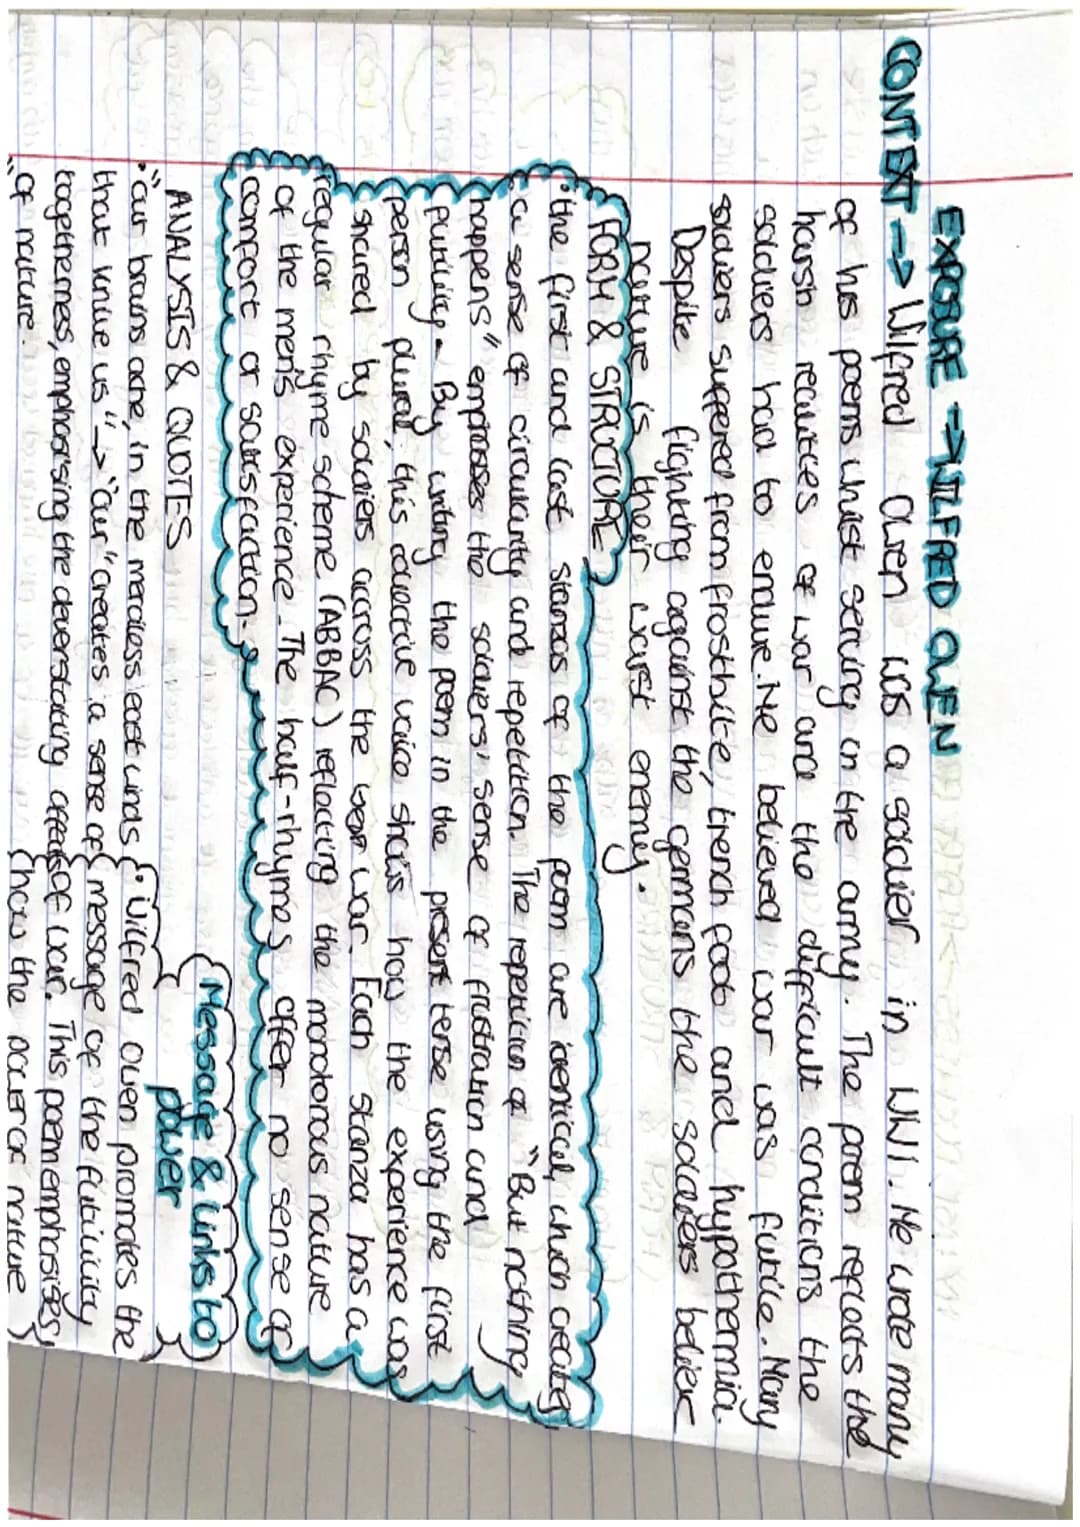 EXPOSURE → WILFRED OWEN
CONTEXT → Wilfred Owen was a soldier in WW1. He wrote many
of his poems whilst serving in the army. The poem reflects the
harsh realities of war and the difficult conditions the
soldiers had to endure. He believed war was futile. Many
soldiers suffered from frostbite, trench foot and hypothermia.
Despite fighting against the germans the soldiers believe
nature is their worst enemy.
FORM & STRUCTURE
• the first and last stanzas of the poem are identical, which creates
a sense of circularity and repetition. The repetition of "But nothing
happens" emphases the soldiers' sense of frustration and
futility. By writing the poem in the present tense using the first
person plural, this collective voice shows how the experience was
shared by soldiers accross the war. Each stanza has a
regular rhyme scheme (ABBAC) reflecting the monotonous nature
of the men's experience. The half-rhymes offer no sense of
comfort or satisfaction.
ANALYSIS & QUOTES
• "Our brains ache, in the merciless east winds
that knive us" → "Our" creates a sense of
togetherness, emphasising the deverstating affects
of nature.
Message & links to
power
• Wilfred owen promotes the
message of the futility
of war. This poem emphasises
how the power of nature